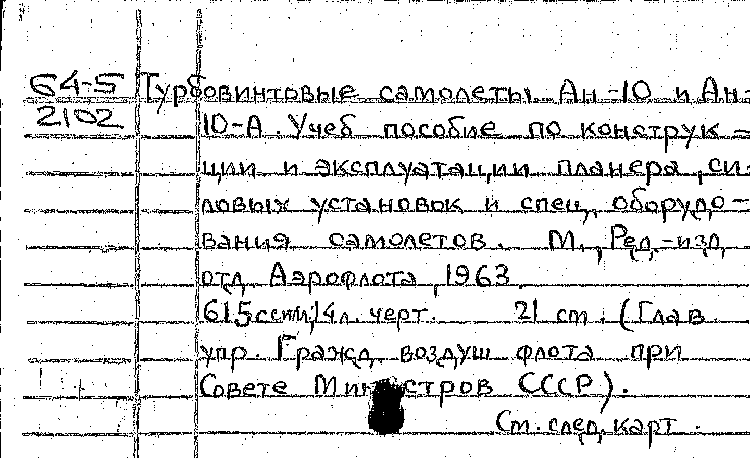 64-5 Турбовинтовые самолеты Ан-10 и Ан-
2102 10-А. Учеб пособие по конструк-
ции и эксплуатации планера, си-
ловых установок и спец. оборудо-
вания самолетов. М., Ред.-изд.
отд. Аэрофлота, 1963.
615 с. ил; 14 л. черт. 21 см. (Глав.
упр. Гражд. воздуш флота при
Совете Министров СССР).
См. след. карт.